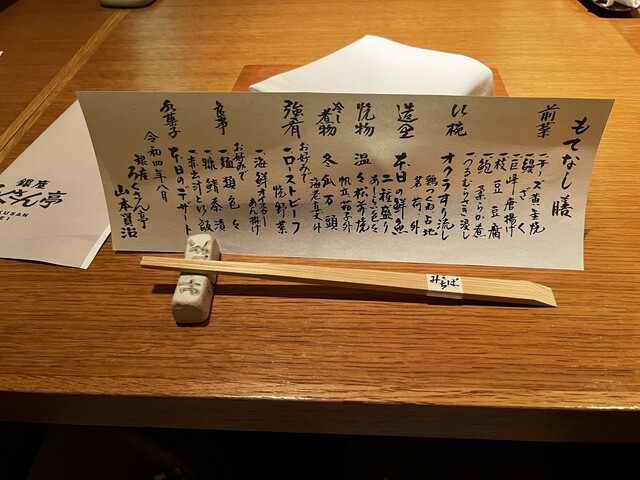 もてなし膳
前菜
一、チーズ黄金焼
一、鰻ざく
一、巨峰唐揚げ
一、枝豆豆腐
一、鮑柔らか煮
一、つるむらさき浸し
御椀
オクラすり流し
鶏つくね 占地
茗荷 外
造里
本日の鮮魚
二種盛り
あしらい色々
焼物
温々松前焼
帆立 茄子 外
冷し煮物
冬瓜万頭
海老 豆 外
強肴
お好みで
一、ローストビーフ
焼野菜
一、海鮮
あん掛け
食事
お好みで
一、麺類色々
一、鯖茶漬
一、赤出汁と御飯
水菓子
本日のデザート
令和四年八月
銀座
ろくさん亭
山本賢治
銀座
くさん亭
KUSAN
EI
みちば